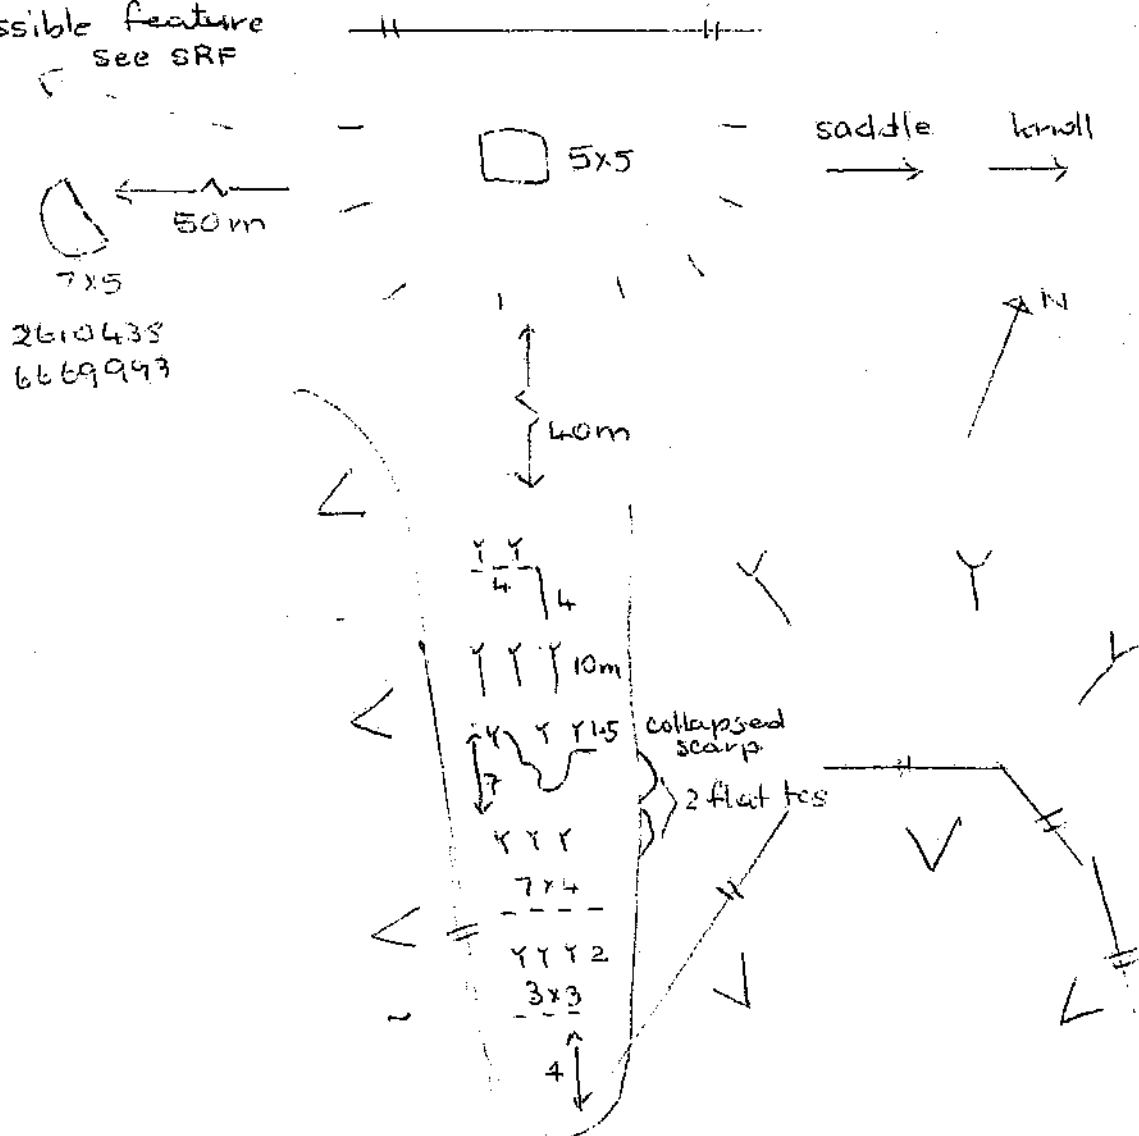 ssible feature
see SRF
saddle
knoll
5x5
50m
7x5
2610438
6669993
N
40m
4
4
10m
1.5
collapsed
scarp
7
2 flat tcs
7x4
2
3x3
4